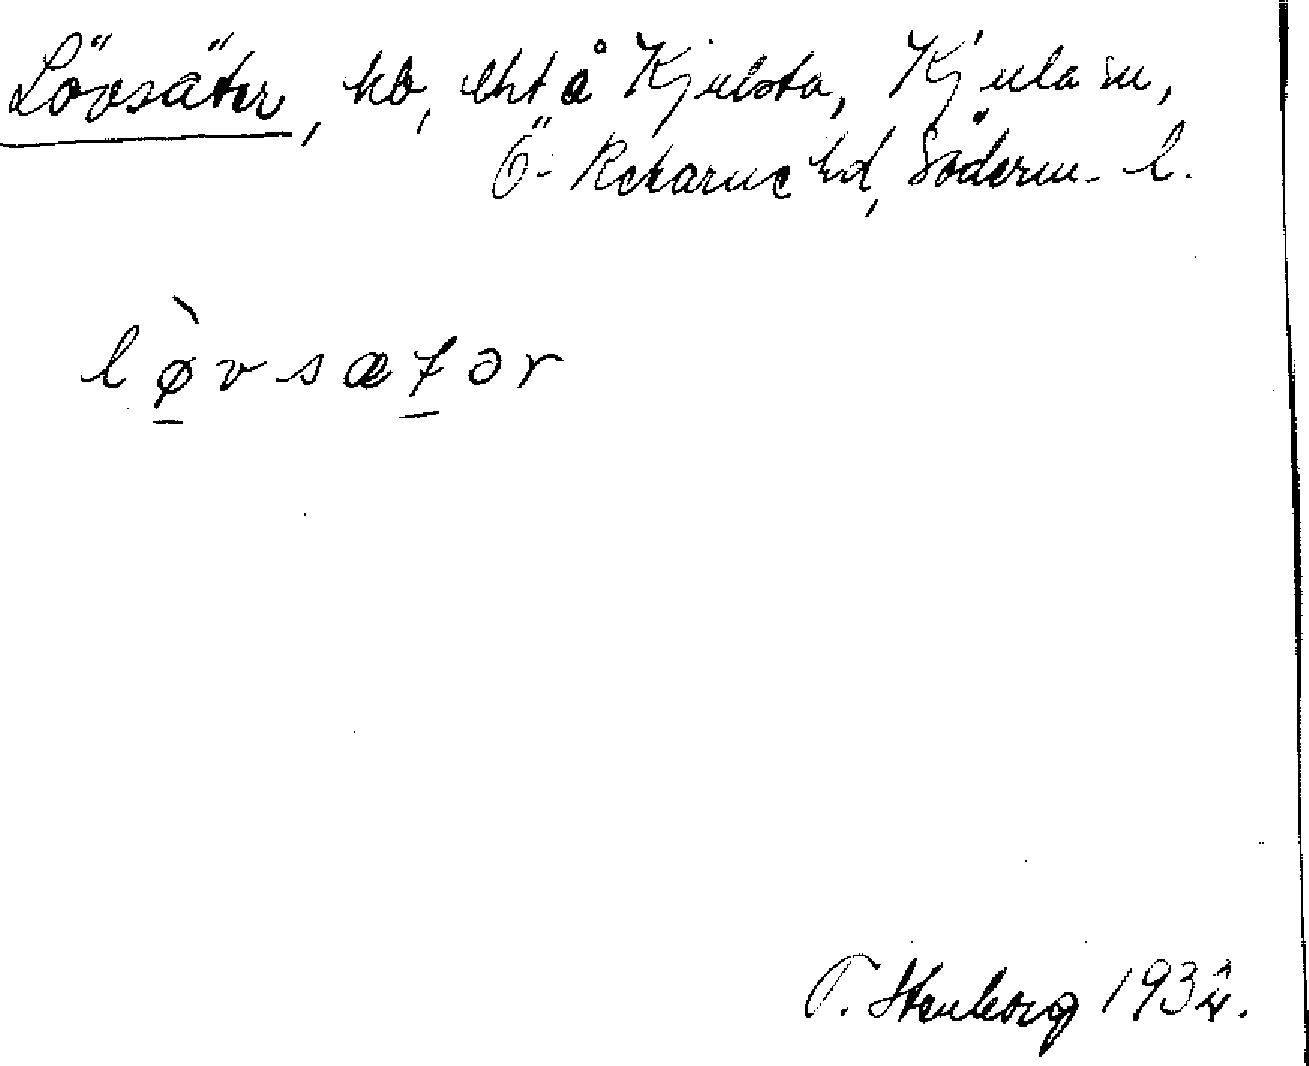 Lövsäter, hb, lht å Kjulsta, Kjula sn,
Ö. Rekarne hd, Söderm. l.
lø̀vsætər
T. Stenborg 193